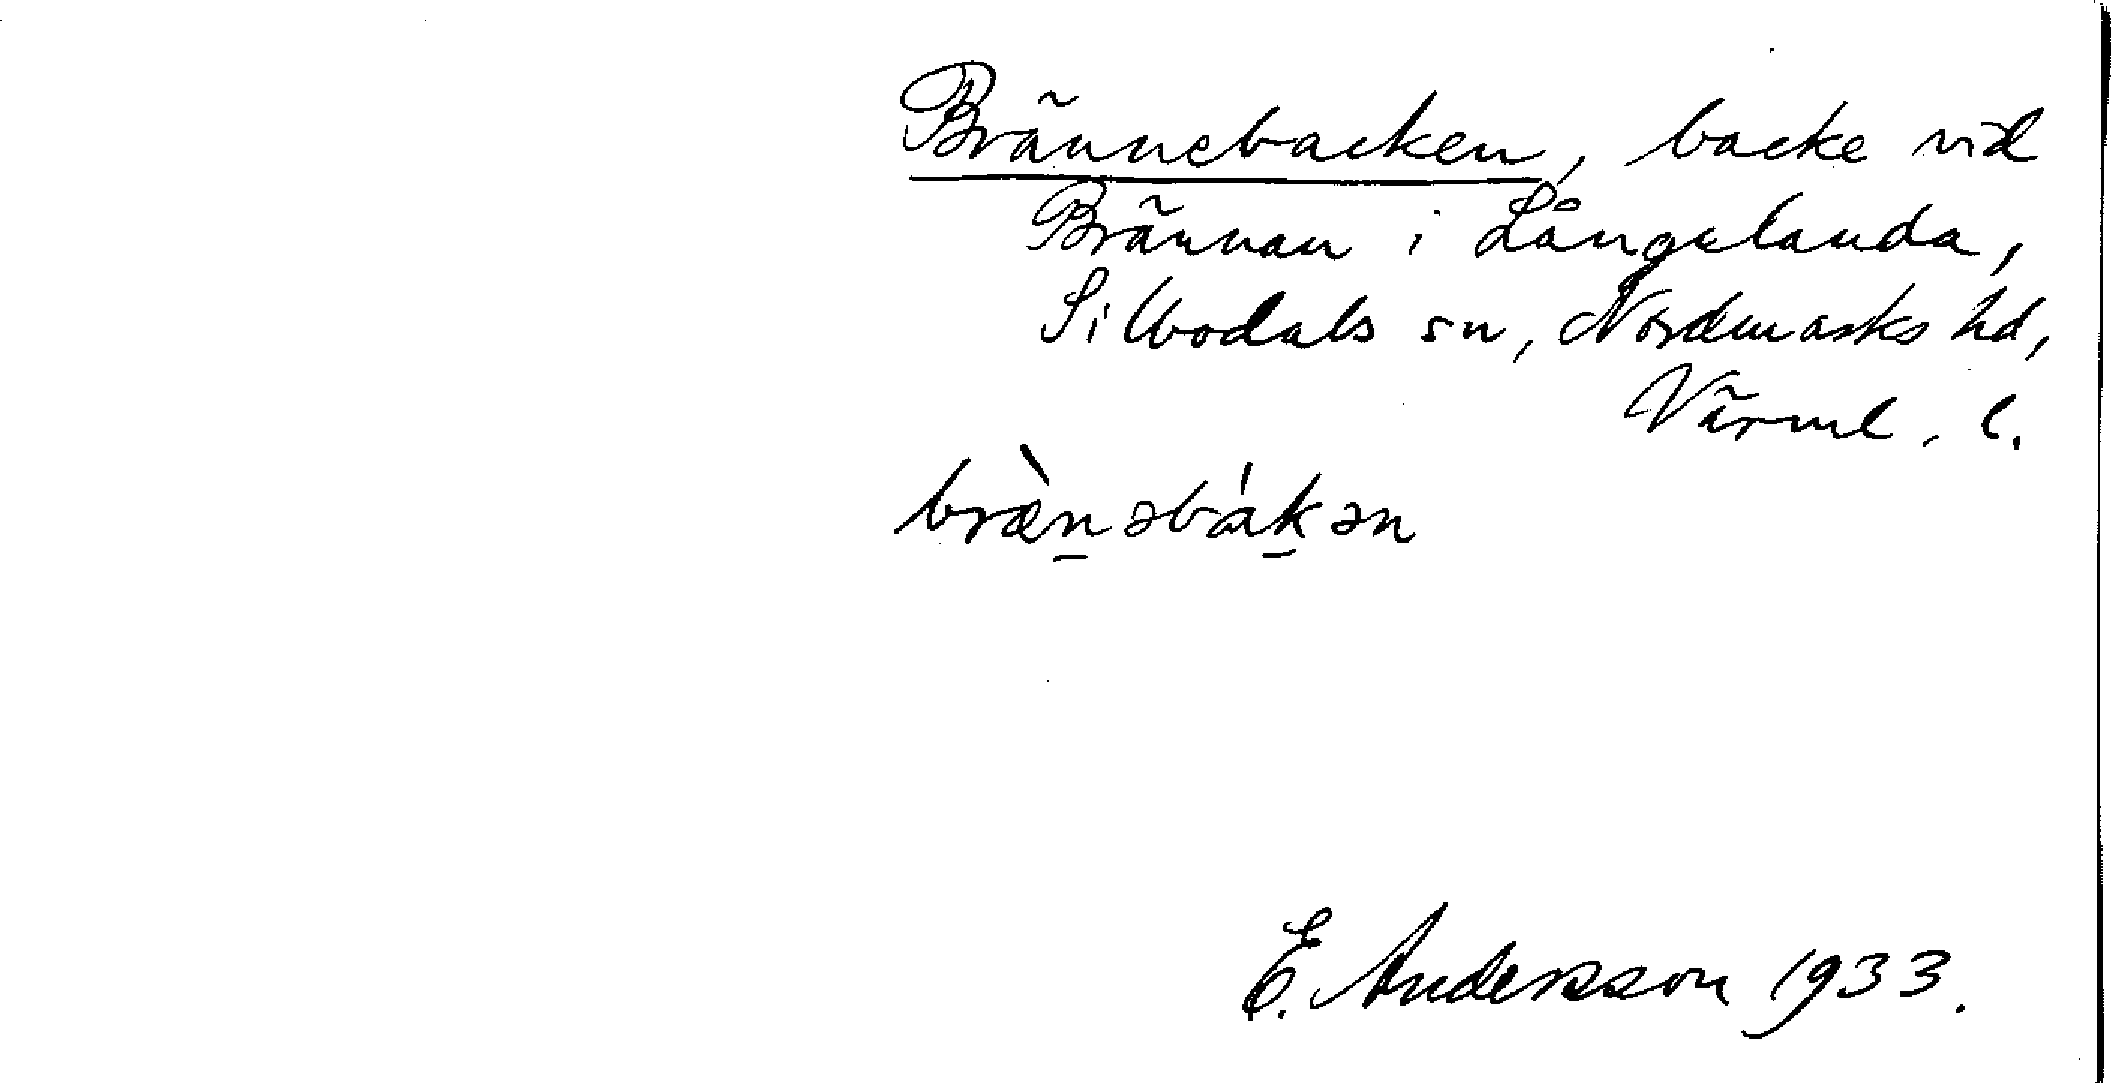 Brännebacken, backe vid
Brännan i Långelanda,
Silbodals sn, Nordmarks hd,
Värml. l.
bræ̀n̲əbák̲ən
E. Andersson 1933.